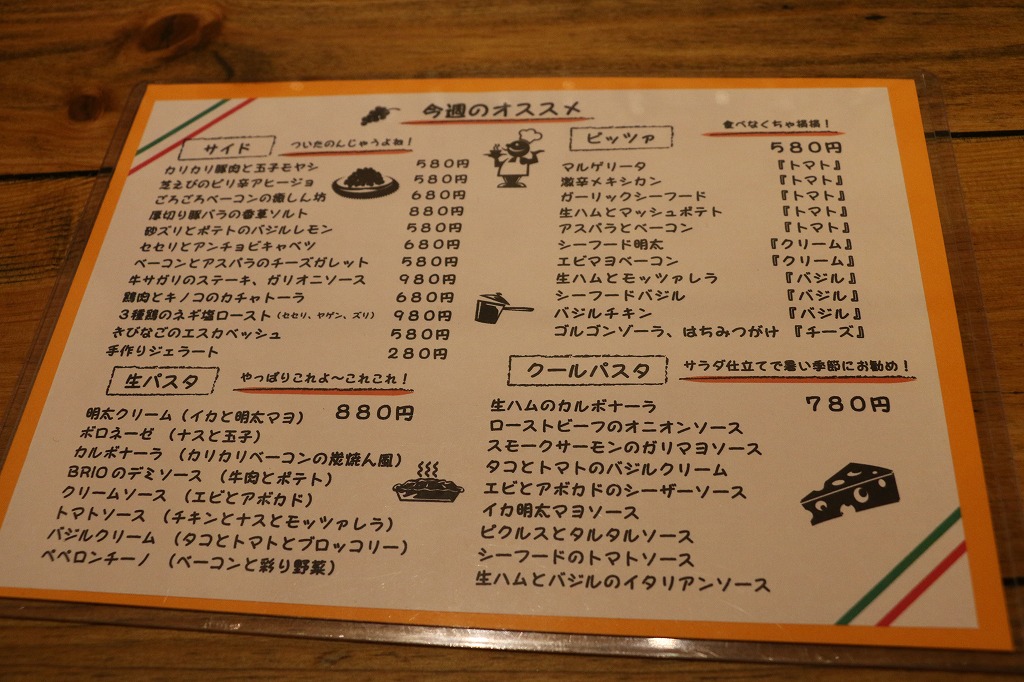 今週のオススメ
サイド
ついたのんじゃうよね!
カリカリ豚肉と玉子モヤシ 580円
芝えびのピリ辛アヒージョ 580円
ごろごろベーコンの癒しん坊 680円
厚切り豚バラの香草ソルト 880円
砂ズリとポテトのバジルレモン 580円
セセリとアンチョビキャベツ 680円
ベーコンとアスパラのチーズガレット 580円
牛サガリのステーキ、ガリオニソース 980円
鶏肉とキノコのカチャトーラ 680円
3種鶏のネギ塩ロースト(セセリ、ヤゲン、ズリ) 980円
きびなごのエスカベッシュ 580円
手作りジェラート 280円
ピッツァ
食べなくちゃ損損!
580円
マルゲリータ 『トマト』
激辛メキシカン 『トマト』
ガーリックシーフード 『トマト』
生ハムとマッシュポテト 『トマト』
アスパラとベーコン 『トマト』
シーフード明太 『クリーム』
エビマヨベーコン 『クリーム』
生ハムとモッツァレラ 『バジル』
シーフードバジル 『バジル』
バジルチキン 『バジル』
ゴルゴンゾーラ、はちみつがけ 『チーズ』
生パスタ
やっぱりこれよ〜これこれ!
880円
明太クリーム(イカと明太マヨ)
ボロネーゼ(ナスと玉子)
カルボナーラ(カリカリベーコンの炭焼ん風)
BRIOのデミソース(牛肉とポテト)
クリームソース(エビとアボカド)
トマトソース(チキンとナスとモッツァレラ)
バジルクリーム(タコとトマトとブロッコリー)
ペペロンチーノ(ベーコンと彩り野菜)
クールパスタ
サラダ仕立てで暑い季節にお勧め!
780円
生ハムのカルボナーラ
ローストビーフのオニオンソース
スモークサーモンのガリマヨソース
タコとトマトのバジルクリーム
エビとアボカドのシーザーソース
イカ明太マヨソース
ピクルスとタルタルソース
シーフードのトマトソース
生ハムとバジルのイタリアンソース